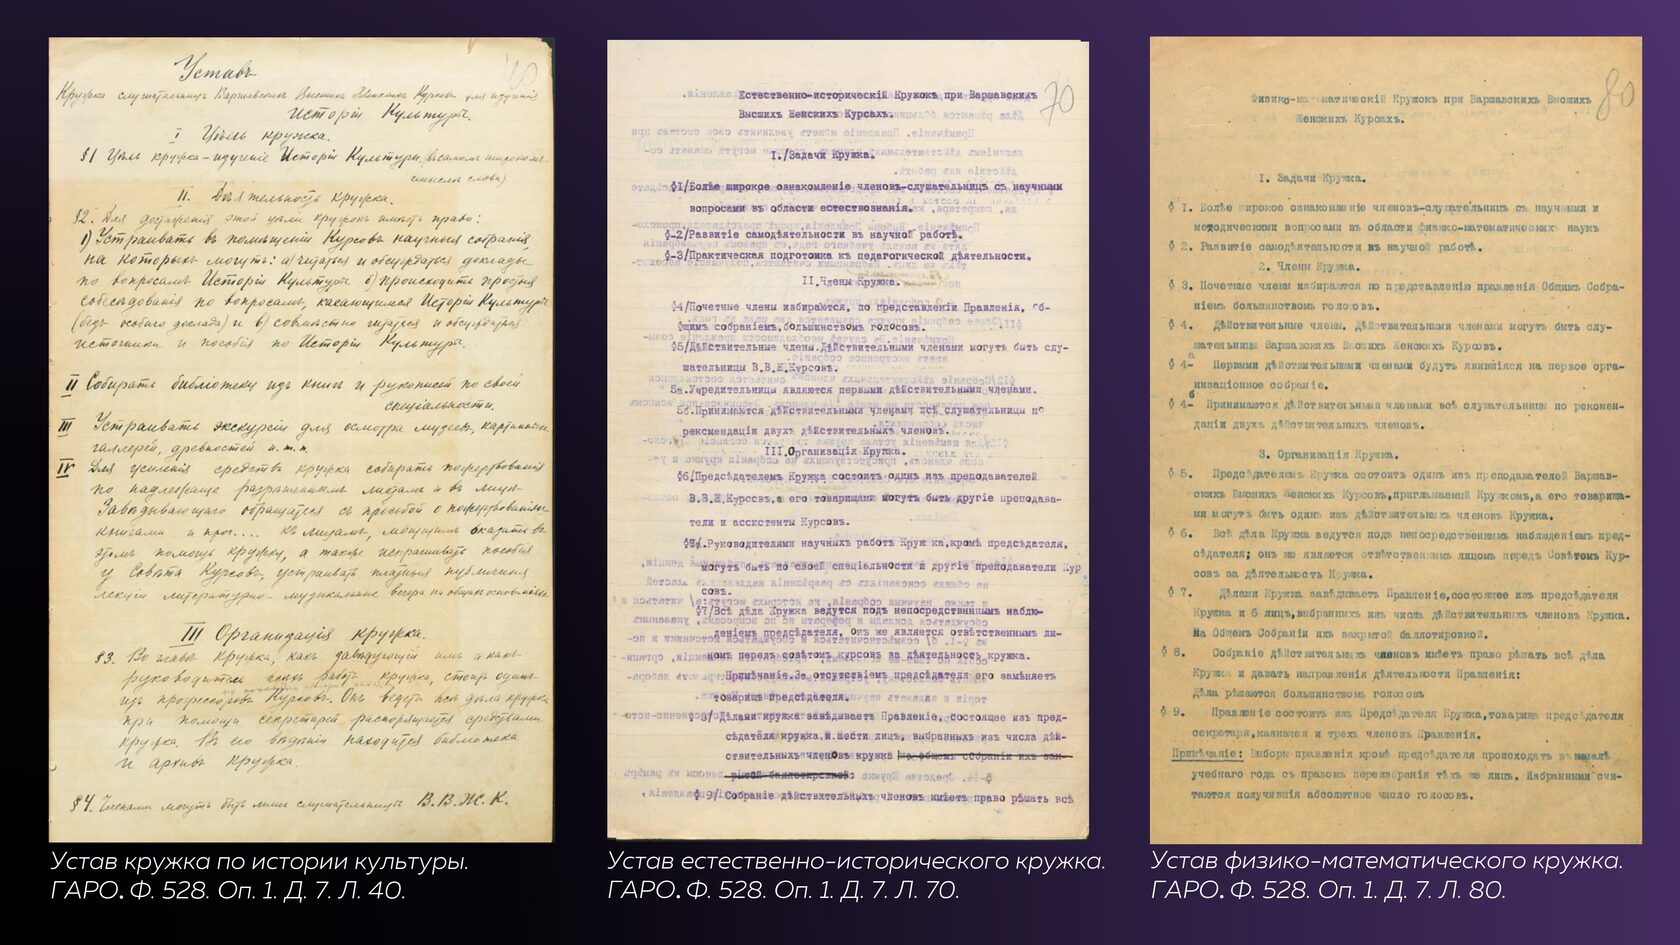 Уставъ
Кружка слушательницъ Варшавскихъ Высшихъ Женскихъ Курсовъ для изученія
Исторіи Культуры.
I Цѣль кружка.
§1 Цѣль кружка – изученіе Исторіи Культуры (въ самомъ широкомъ
смыслѣ слова)
II. Дѣятельность кружка.
§2. Для достиженія этой цѣли кружокъ имѣетъ право:
1) Устраивать въ помѣщеніи Курсовъ научныя собранія
на которыхъ могутъ: а) читаться и обсуждаться доклады
по вопросамъ Исторіи Культуры б) происходить простыя
собесѣдованія по вопросамъ, касающимся Исторіи Культуры
(безъ особаго доклада) и в) совмѣстно читаться и обсуждаться
источники и пособія по Исторіи Культуры.
II Собирать библіотеку изъ книгъ и рукописей по своей
спеціальности.
III Устраивать экскурсіи для осмотра музеевъ, картинныхъ
галлерей, древностей и т. п.
IV Для усиленія средствъ кружка собирать пожертвованія
по надлежаще разрѣшеннымъ листамъ и въ лицѣ
Завѣдывающаго обращаться съ просьбой о пожертвованіи
книгами и проч.... къ лицамъ, могущимъ оказать въ
этомъ помощь кружку, а также испрашивать пособія
у Совѣта Курсовъ, устраивать платныя публичныя
лекціи литературно-музыкальные вечера на общихъ основаніяхъ
III Организація кружка.
§3. Во главѣ кружка, какъ завѣдующій имъ а какъ
руководитель работъ кружка, стоитъ одинъ
изъ профессоровъ Курсовъ. Онъ ведетъ всѣ дѣла кружка
при помощи секретаря распоряжается средствами
кружка. Въ его вѣдѣніи находится библіотека
и архивъ кружка.
§4. Членами могутъ быть лишь слушательницы В.В.Ж.К.
Устав кружка по истории культуры.
ГАРО. Ф. 528. Оп. 1. Д. 7. Л. 40.
70
Естественно-историческій Кружокъ при Варшавскихъ
Высшихъ Женскихъ Курсахъ.
I./Задачи Кружка.
§1/Болѣе широкое ознакомленіе членовъ-слушательницъ съ научными
вопросами въ области естествознанія.
§-2/Развитіе самодѣятельности въ научной работѣ.
§-3/Практическая подготовка къ педагогической дѣятельности.
II.Члены Кружка.
§4/Почетные члены избираются, по представленію Правленія, Об-
щимъ собраніемъ, большинствомъ голосовъ.
§5/Дѣйствительные члены.Дѣйствительными членами могутъ быть слу-
шательницы В.В.Ж.Курсовъ.
5а.Учредительницы являются первыми дѣйствительными членами.
5б.Принимаются дѣйствительными членами всѣ слушательницы по
рекомендаціи двухъ дѣйствительныхъ членовъ.
III.Организація Кружка.
§6.Предсѣдателемъ Кружка состоитъ одинъ изъ преподавателей
В.В.Ж.Курсовъ,а его товарищами могутъ быть другіе преподава-
тели и ассистенты Курсовъ.
Руководителями научныхъ работъ Кружка,кромѣ предсѣдателя,
могутъ быть по своей спеціальности и другіе преподаватели Кур
совъ.
§7/Всѣ дѣла Кружка ведутся подъ непосредственнымъ наблю-
деніемъ предсѣдателя, онъ же является отвѣтственнымъ ли-
номъ передъ совѣтомъ курсовъ за дѣятельность кружка.
Примѣчаніе.За отсутствіемъ предсѣдателя его замѣняетъ
товарищъ предсѣдателя.
§ 8/ Дѣлами кружка завѣдываетъ Правленіе, состоящее изъ пред-
сѣдателя кружка и шести лицъ, выбранныхъ изъ числа дѣй-
ствительныхъ членовъ кружка на общемъ Собраніи ихъ зак-
рытой баллотировкой:
§ 9/ Собраніе дѣйствительныхъ членовъ имѣетъ право рѣшать всѣ
Устав естественно-исторического кружка.
ГАРО. Ф. 528. Оп. 1. Д. 7. Л. 70.
80
Физико-математическій Кружокъ при Варшавскихъ Высшихъ
Женскихъ Курсахъ.
I. Задачи Кружка.
§ 1. Болѣе широкое ознакомленіе членовъ-слушательницъ съ научными и
методическими вопросами въ области физико-математическихъ наукъ
§ 2. Развитіе самодѣятельности въ научной работѣ.
2. Члены Кружка.
§ 3. Почетные члены избираются по представленію правленія Общимъ Собра-
ніемъ большинствомъ голосовъ.
§ 4. Дѣйствительные члены. Дѣйствительными членами могутъ быть слу-
шательницы Варшавскихъ Высшихъ Женскихъ Курсовъ.
§ 4-а Первыми дѣйствительными членами будутъ явившіяся на первое орга-
низаціонное собраніе.
§ 4-б Принимаются дѣйствительными членами всѣ слушательницы по рекомен-
даціи двухъ дѣйствительныхъ членовъ.
3. Организація Кружка.
§ 5. Предсѣдателемъ Кружка состоитъ одинъ изъ преподавателей Варшав-
скихъ Высшихъ Женскихъ Курсовъ,приглашаемый Кружкомъ,а его товарища-
ми могутъ быть одинъ изъ дѣйствительныхъ членовъ Кружка.
§ 6. Всѣ дѣла Кружка ведутся подъ непосредственнымъ наблюденіемъ пред-
сѣдателя; онъ же является отвѣтственнымъ лицомъ передъ Совѣтомъ Кур-
совъ за дѣятельность Кружка.
§ 7. Дѣлами Кружка завѣдываетъ Правленіе,состоящее изъ предсѣдателя
Кружка и 6 лицъ,выбранныхъ изъ числа дѣйствительныхъ членовъ Кружка.
На Общемъ Собраніи ихъ закрытой баллотировкой.
§ 8. Собраніе дѣйствительныхъ членовъ имѣетъ право рѣшать всѣ дѣла
Кружка и давать направленія дѣятельности Правленія:
Дѣла рѣшаются большинствомъ голосовъ
§ 9. Правленіе состоитъ изъ Предсѣдателя Кружка,товарища предсѣдателя
секретаря,казначея и трехъ членовъ Правленія.
Примѣчаніе: Выборы правленія кромѣ предсѣдателя происходятъ въ началѣ
учебнаго года съ правомъ переизбранія тѣхъ же лицъ. Избранными счи-
таются получившія абсолютное число голосовъ.
Устав физико-математического кружка.
ГАРО. Ф. 528. Оп. 1. Д. 7. Л. 80.